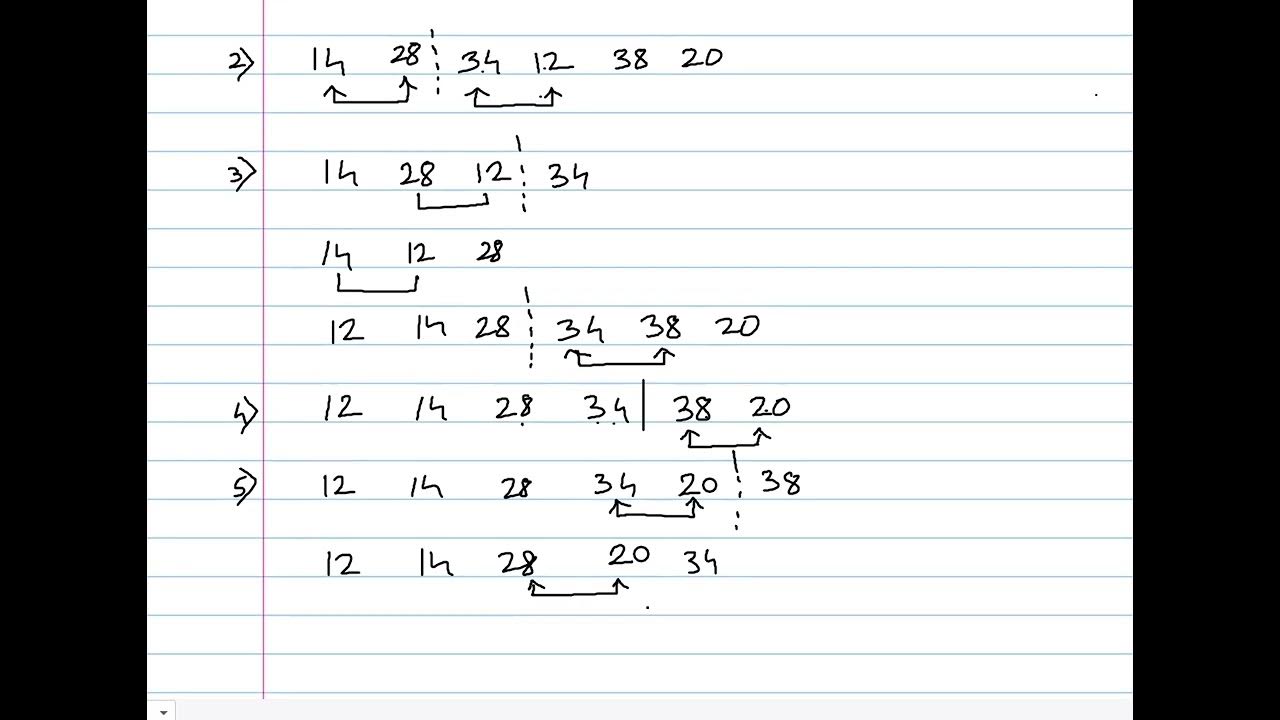 2) 14 28 34 12 38 20
3) 14 28 12 34
14 12 28
12 14 28 34 38 20
4) 12 14 28 34 38 20
5) 12 14 28 34 20 38
12 14 28 20 34